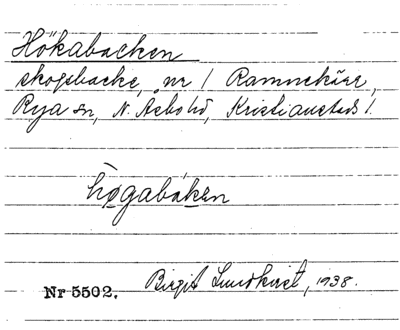 Hökabacken
skogsbacke, nr 1 Ramnekärr,
Rya sn, N. Åsbo hd, Kristianstads l.
høgabáken
Nr 5502. Birgit Lundkvist, 1938.